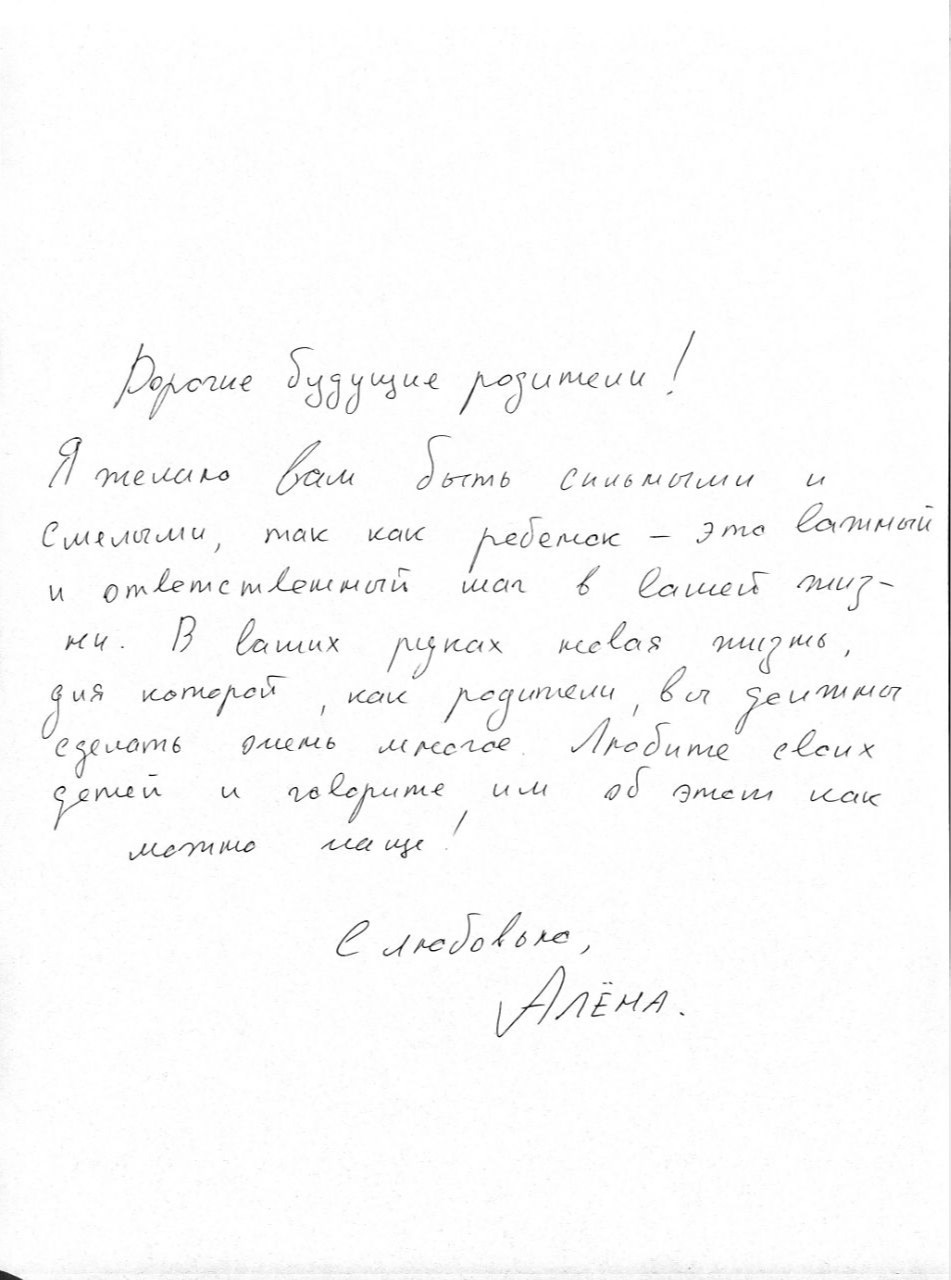 Дорогие будущие родители!
Я желаю вам быть сильными и
смелыми, так как ребенок – это важный
и ответственный шаг в вашей жиз-
ни. В ваших руках новая жизнь,
для которой, как родители, вы должны
сделать очень многое. Любите своих
детей и говорите им об этом как
можно чаще!
С любовью,
АЛЁНА.